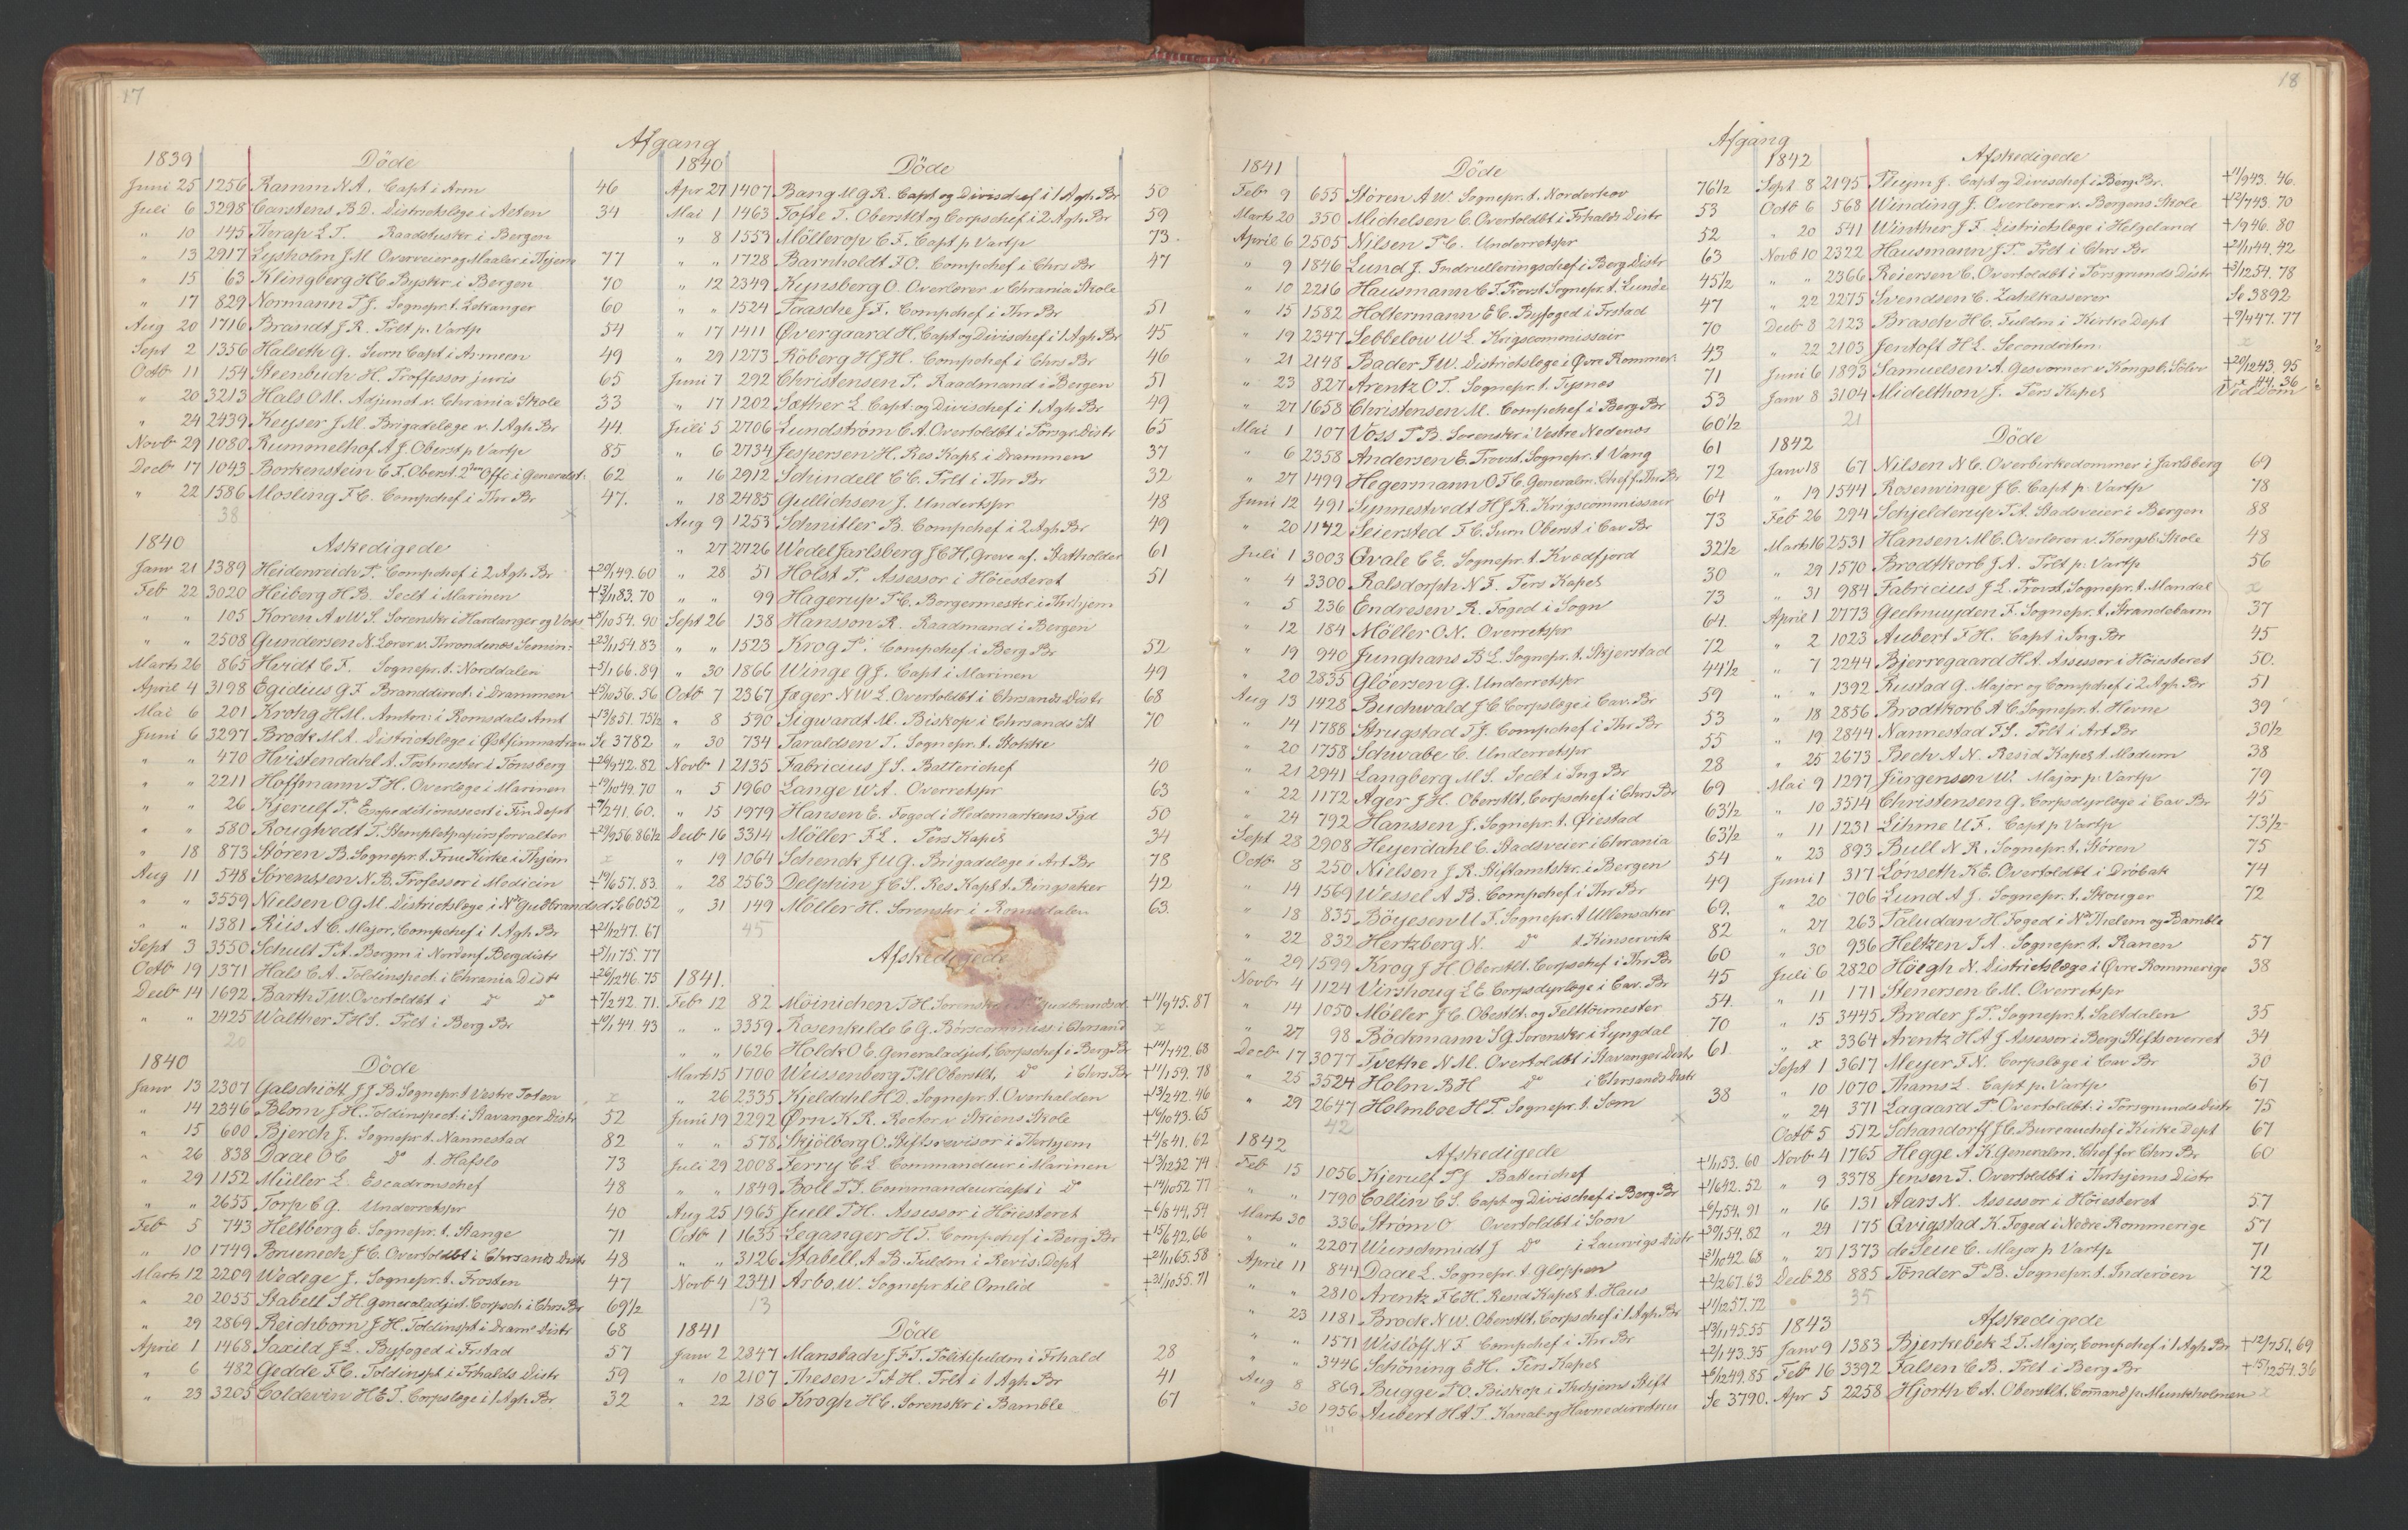 17
Afgang
1839 Döde
Juni 25 1256 Ramm N A. Capt i Arm 46
Juli 6 3298 Carstens B D. Districtslæge i Alten 34
" 10 145 Thrap L T. Raadstuskr i Bergen
" 13 2917 Lysholm J M Overveier og Maaler i Thjem 77
" 15 63 Klingberg H C. Byskr i Bergen 70
" 17 829 Normann P J. Sognepr. t. Lekanger 60
Aug 20 1716 Brandt J R. Prlt p. Vartp 54
Sept 2 1356 Halseth G. Surn Capt i Armeen 49
Octb 11 154 Steenbuch H. Proffessor juris 65
" 20 3213 Hals O M. Adjunct v. Chrania Skole 33
" 24 2439 Keyser J M. Brigadelæge v. 1 Agh Br 44
Novb 29 1080 Rummelhof A J. Oberst p Vartp 85
Decb 17 1043 Borkenstein C F. Oberst. 2den Offc i Generalst: 62
" 22 1586 Mosling F C. Compchef i Thr Br 47.
38
1840 Askedigede
Janv 21 1389 Heidenreich P. Compchef i 2 Agh Br +20/1 49. 60
Feb 22 3020 Heiberg H B. Seclt i Marinen +13/11 83. 70
" " 105 Koren A v W S. Sorenskr i Hardanger og Voss +8/10 54. 90
" " 2508 Gundersen N. Lærer v. Throndenæs Semin: +23/11 54. 83
Marts 26 865 Hvidt C F. Sognepr. t. Norddalen +5/1 66. 89
April 4 3198 Egidius G F. Branddirect: i Drammen +9/10 56. 56
Mai 6 201 Krohg H M. Amtm: i Romsdals Amt +13/8 51. 75½
Juni 6 3297 Brock M A. Districtslæge i Østfinmarken Se 3782
" " 470 Hvistendahl A. Postmester i Tönsberg +26/9 42. 82
" " 2211 Hoffmann P H. Overlæge i Marinen +19/10 49. 70
" " 26 Kjerulf P. Expeditionssecrt i Fin Dept +7/2 41. 60.
" " 580 Rougtvedt T. Stempletpapirsforvalter +29/9 56. 86½
" 18 873 Stören B. Sognepr. t. Frue Kirke i Thjem x
Aug 11 548 Sörenssen N. B. Professor i Medicin +19/6 57. 83.
" " 3559 Nielsen O G M. Districtslæge i Ndr Gulbrandsd Se 6052
" " 1381 Riis A C. Major, Compchef i 1 Agh Br +21/12 47. 67
Sept 3 3550 Schult P A. Bergm i Nordenf Bergdistr +5/11 75. 77
Octb 19 1371 Hals C A. Toldinspect: i Chrania Distr +26/12 46. 75
Decb 14 1692 Barth T W. Overtoldbt i do do +7/2 42. 71.
" " 2425 Walther P H S. Prlt i Berg Br +10/1 44. 43
20
1840 Döde
Janv 13 2307 Galschiött J J B. Sognepr. t Vestre Toten x
" 14 2346 Blom J H. Toldinspect: i Stavanger Distr 52
" 15 600 Bjerch J. Sognepr t. Nannestad 82
" 26 838 Daae O C do t. Hafslo 73
" 29 1152 Müller L. Escadronschef 48
" " 2655 Torp C G. Underretspr 40
Feb 5 743 Heltberg E. Sognepr. t. Stange 71
" 10 1749 Bruenech J C. Overtoldbt i Chrsands Distr 48
Marts 12 2209 Wedege J. Sognepr. t. Frosten 47
" 20 2055 Stabell S H. Generaladjut. Corpsch i Chrs Br 69½
" 29 2869 Reichborn J H. Toldinspt i Dram. Distr 68
April 1 1468 Saxild J L. Byfoged i Frstad 57
" 6 482 Gedde F C. Toldinspt i Frhalds Distr 59
" 23 3205 Coldevin H E T. Corpslæge i 1 Agh Br 32
1840 Döde
Apr 27 1407 Bang M G R. Capt og Divischef i 1 Agh Br 50
Mai 1 1463 Tofte T. Oberstlt og Corpschef i 2 Agh Br 59
" 8 1553 Möllerop C F. Capt p Vartp 73.
" " 1728 Barnholdt F O. Compchef i Chrs Br 47
" 12 2349 Kynsberg O. Overlærer v Chrania Skole
" " 1524 Paasche J F. Compchef i Thr Br 51
" 17 1411 Øvergaard H. Capt og Divischef i 1 Agh Br 45
" 29 1273 Röberg H J H. Compchef i Chrs Br 46
Juni 7 292 Christensen P. Raadmand i Bergen 51
" 17 1202 Sæther L. Capt. og Divischef i 1 Agh Br 49
Juli 5 2706 Lundström C A. Overtoldbt i Porsgr. Distr 65
" 6 2734 Jespersen H. Res Kapl: i Drammen 37
" 16 2912 Schindell C C. Prlt i Thr Br 32
" 18 2485 Gullichsen J. Undertspr 48
Aug 9 1253 Schnitler B. Compchef i 2 Agh Br 49
" 27 2726 Wedel Jarlsberg J C H, Greve af. Statholder 61
" 28 51 Holst P. Assessor i Höiesteret 51
" " 99 Hagerup P C. Borgermester i Thrhjem
Sept 26 138 Hansson R. Raadmand i Bergen
" " 1523 Krog P. Compchef i Berg Br 52
" 30 1866 Winge G J. Capt i Marinen 49
Octb 7 2367 Jæger N W L. Overtoldbt i Chrsands Distr 68
" 8 590 Sigwardt M. Biskop i Chrsands St 70
" 30 734 Taraldsen T. Sognepr. t. Stokke
Novb 1 2135 Fabricius J S. Batterichef 40
" 5 1960 Lange W A. Overretspr 63
" 15 1979 Hansen E. Foged i Hedemarkens Fgd 50
Decb 16 3314 Möller F L. Pers Kapel 34
" 19 1064 Schenck J U G. Brigadelæge i Art Br 78
" 28 2563 Delphin J C S. Res Kapt t. Ringsaker 42
" 31 149 Möller H. Sorenskr i Romsdalen 63.
45
Afskedigede
1841.
Feb 12 82 Möinichen P H. Sorenskr i Gudbrandsd +11/9 45. 87
" " 3359 Rosenkilde C G. Börscommiss: i Chrsand x
" " 1626 Holck O E. Generaladjut, Corpschef i Berg Br +14/7 42. 68
Marts 15 1700 Weissenberg P M Oberstlt, do i Chrs Br +11/1 59. 78
" 26 2335 Kjeldahl H D. Sognepr. t. Overhalden +13/2 42. 46
Juni 19 2292 Ørn K R. Rector v Skiens Skole +16/10 43. 65
" " 578 Skjölberg O. Stiftsrevisor i Thrhjem +4/8 41. 62
Juli 29 2008 Ferry C L Commandeur i Marinen +13/12 52 74
" " 1849 Boll P J. Commandeurcapt i do +14/10 52 77
Aug 25 1965 Juell P H. Assessor i Höiesteret +6/8 44. 54
Octb 1 1635 Legangier H T. Compchef i Berg Br +15/6 42. 66
" " 3126 Stabell A B. Fuldm i Revis: Dept +24/11 65. 58
Novb 4 2341 Arbo. W. Sognepr til Omlid +31/10 55. 71
13
1841 Döde
Janv 2 2847 Mansbach J F T. Politifuldm i Frhald 28
" 10 2107 Thesen P A H. Prlt i 1 Agh Br 41
" 22 186 Krogh H C. Sorenskr i Bamble 67
18
Afgang
1841 Döde
Feb 9 655 Stören A W. Sognepr. t. Norderhov 76½
Marts 20 350 Michelsen C. Overtoldbt i Frhalds Distr 53
April 6 2505 Nilsen P C. Underretspr 52
" 9 1846 Lund J. Indrulleringschef i Berg Distr 63
" 10 2216 Hausmann C F. Provst Sognepr. t. Lunde 45½
" 15 1582 Holtermann E C. Byfoged i Frstad 47
" 19 2347 Sebbelow W L. Krigscommissair 70
" 21 2148 Bader F W. Districtslæge i Øvre Rommer: 43
" 23 827 Arentz O T. Sognepr. t. Tysnæs 71
" 27 1658 Christensen M. Compchef i Berg Br 53
Mai 1 107 Voss P B. Sorenskr i Vestre Nedenæs 60½
" 6 2358 Andersen E. Provst. Sognepr. t Vang 61
" 27 1499 Hegermann O F C. Generalm. Chef f. Thr Br 72
Juni 12 491 Synnestvedt H J R. Krigscommissair 64
" 20 1172 Seiersted F C. Surn Oberst i Cav Br 73
Juli 1 3003 Qvale C E. Sognepr. t. Kvædfjord 32½
" 4 3300 Ralsdorph N F. Pers Kapel 30
" 5 236 Endresen R. Foged i Sogn 73
" 12 184 Möller O N. Overretspr 64.
" 19 940 Junghans B L. Sognepr. t. Skjerstad 72
" 20 2835 Glöersen G. Underretspr 44½
Aug 13 1428 Buchwald J C Corpslæge i Cav. Br 59
" 14 1788 Strugstad P J. Compchef i Thr Br 53
" 20 1758 Schwabe C. Underretspr 55
" 21 2941 Langberg M S. Seclt i Ing Br 28
" 22 1172 Ager J H. Oberstlt, Corpschef i Chrs Br 69
" 24 792 Hanssen J. Sognepr. t. Øiestad 63½
Sept 28 2908 Heyerdahl C. Stadsveier i Chrania 63½
Octb 3 250 Nielsen J R. Stiftamtskr. i Bergen 54
" 14 1569 Wessel A B. Compchef i Thr Br 49
" 18 835 Böyesen U F. Sognepr. t Ullensaker 69.
" 22 832 Hertzberg N. do t. Kinservik 82
" 29 1599 Krog J H Oberstlt. Corpschef i Thr Br 60
Novbr 4 1124 Virshoug L E Corpsdyrlæge i Cav. Br 45
" 14 1050 Möller J C. Obestlt. og Felttöimester 54.
" 27 98 Böckmann S G. Sorenskr i Lyngdal 70
Decb 17 3077 Tvethe N M. Overtoldbt i Stavanger Distr 61.
" 25 3524 Holm B H do i Chrsands Distr
" 29 2647 Holmboe H P. Sognepr. t. Sem 38
42
1842 Afskedigede
Feb 15 1056 Kjerulf P J Batterichef +1/11 53. 60
" " 1790 Collin C S. Capt og Divischef i Berg Br +1/6 42. 52
Marts 30 336 Ström O Overtoldbt i Soon +6/7 54. 91
" " 2207 Wurschmidt J do i Laurvigs Distr +30/1 54. 82
April 11 844 Daae L. Sognepr. t. Gloppen +31/10 42. 68
" " 2810 Arentz F C H. Resid Kapel t. Haus +2/2 67. 63
" 23 1181 Brock N W. Oberstlt, Corpschef i 1 Agh Br +11/12 57. 72
" " 1571 Wislöff N F Compchef i Thr Br +13/11 45. 55
" " 3446 Schöning E H. Pers Kapel +2/1 43. 35
Aug 8 869 Bugge P O. Biskop i Thrhjems Stift +6/12 49. 85
" 30 1956 Aubert H A T. Kanal- og Havnedirecteur Se 3790.
11
1842 Afskedigede
Sept 8 2195 Fluym J. Capt og Divischef i Berg Br. +11/9 43. 46.
Octb 6 568 Winding J. Overlærer v. Bergens Skole +12/7 43. 70
" 20 541 Winther J F. Districtslæge i Helgeland +19 46. 80
Novb 10 2322 Hausmann J T. Prlt i Chrs Br +21/1 44. 42
" " 2366 Reiersen C. Overtoldbt i Porsgrunds Distr +3/12 54. 78
" 22 2275 Svendsen C. Zahlkasserer Se 3892
Decb 8 2123 Brasch H C. Fuldm i Kirke Dept +9/4 47. 77
" 22 2103 Jentoft H L. Secondrttm: x
Juni 6 1893 Samuelsen A. Gesvorner v Kongsb. Sölvv +20/12 43. 95
Janv 8 3104 Midelthon J. Pers Kapel x 44. 36
Ved Dom
21
1842 Döde
Janv 18 67 Nilsen N C. Overbirkedommer i Jarlsberg 69
" 19 1544 Rosenvinge J C. Capt p: Vartp 78
Feb 26 294 Schjelderup P A. Stadsveier i Bergen 88
Marts 16 2531 Hansen M C. Overlærer v. Kongsb. Skole 48
" 29 1570 Brodtkorb J A. Prlt p: Vartp 56
" 31 984 Fabricius J L. Provst, Sognepr. t. Mandal x
April 1 2773 Geelmuyden F. Sognepr. t. Strandebarm 37
" 2 1023 Aubert F H. Capt i Ing Br 45
" 7 2244 Bjerregaard H A. Assessor i Höiesteret 50.
" " 1392 Rustad G. Major og Compchef i 2 Agh Br 51
" 18 2856 Brodtkorb A C. Sognepr. t. Hevne 39
" 19 2844 Nannestad F S. Prlt i Art Br 30½
" 25 2673 Bech A N. Resid Kapel t. Modum 38
Mai 9 1297 Jürgensen W. Major p: Vartp 79
" 10 3514 Christensen G. Corpsdyrlæge i Cav Br 45
" 11 1231 Lihme U F. Capt p Vartp 73½
" 23 893 Bull N R, Sognepr. t. Stören 75
Juni 1 317 Lönseth K E. Overtoldbt i Dröbak 74
" 20 706 Lund A J. Sognepr. t. Skouger 72
" 27 263 Paludan H. Foged i Ndr Thelem og Bamble
" 30 936 Heltzen I A. Sognepr. t. Ranen 57
Juli 6 2820 Höegh N. Districtslæge i Øvre Rommerige 38
" 11 171 Stenersen C M. Overretspr
" 15 3445 Breder J P. Sognepr. t. Saltdalen 35
" x 3364 Arentz H A J Assessor i Berg. Stiftsoverret 34
Sept 1 3617 Meyer F N. Corpslæge i Cav Br 30
" 10 1070 Thams L. Capt p. Vartp 67
" 24 371 Lagaard P. Overtoldbt: i Porsgrunds Distr 75
Octb 5 512 Schandorff J C. Bureauchef i Kirke Dept 67
Novb 4 1765 Hegge A K. Generalm. Chef for Chrs Br 60
" 9 3378 Jensen T. Overtoldbt i Thrhjems Distr
" 16 131 Aars N. Assessor i Höiesteret 57
" 24 175 Qvigstad K. Foged i Nedre Rommerige 57
" 27 1373 de Seue C. Major p Vartp 71
Decb 28 885 Tönder P B. Sognepr. t. Inderöen 72
35
1843 Afskedigede
Janv 9 1383 Bjerkebek L T. Major, Compchef i 1 Agh Br +12/7 51. 69
Feb 16 3392 Falsen C B. Prlt i Berg Br +15/12 54. 36
Apr 5 2258 Hjorth C A. Oberstlt. Comand p. Munkholmen x